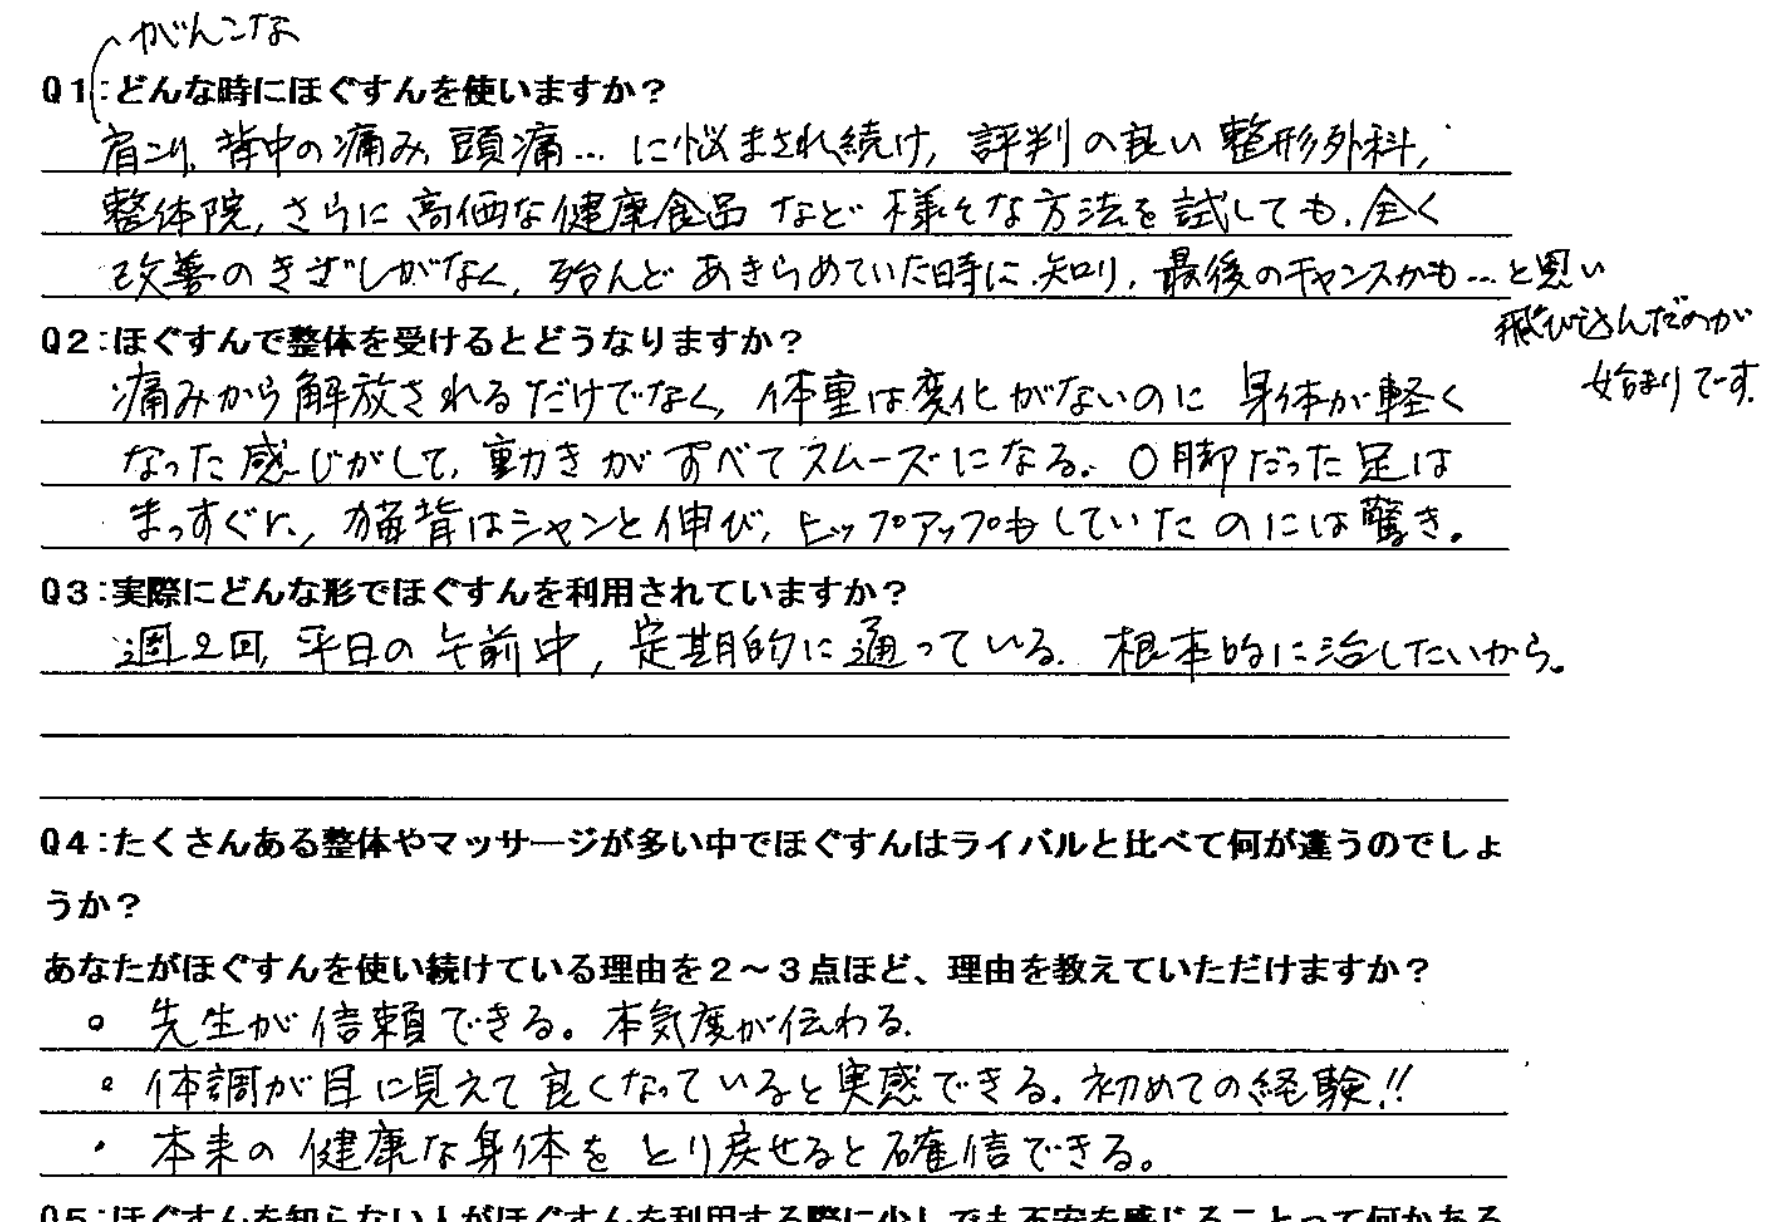 がんこな
Q1:どんな時にほぐすんを使いますか?
肩こり、背中の痛み、頭痛…に悩まされ続け、評判の良い整形外科、
整体院、さらに高価な健康食品など様々な方法を試しても、全く
改善のきざしがなく、殆んどあきらめていた時に知り、最後のチャンスかも…と思い
飛び込んだのが
始まりです。
Q2:ほぐすんで整体を受けるとどうなりますか?
痛みから解放されるだけでなく、体重は変化がないのに身体が軽く
なった感じがして、動きがすべてスムーズになる。O脚だった足は
まっすぐに、猫背はシャンと伸び、ヒップアップもしていたのには驚き。
Q3:実際にどんな形でほぐすんを利用されていますか?
週2回、平日の午前中、定期的に通っている。根本的に治したいから。
Q4:たくさんある整体やマッサージが多い中でほぐすんはライバルと比べて何が違うのでしょ
うか?
あなたがほぐすんを使い続けている理由を2~3点ほど、理由を教えていただけますか?
。先生が信頼できる。本気度が伝わる。
。体調が目に見えて良くなっていると実感できる。初めての経験!!
・本来の健康な身体をとり戻せると確信できる。
Q5:ほぐすんを知らない人がほぐすんを利用する際に少しでも不安を感じることって何かある